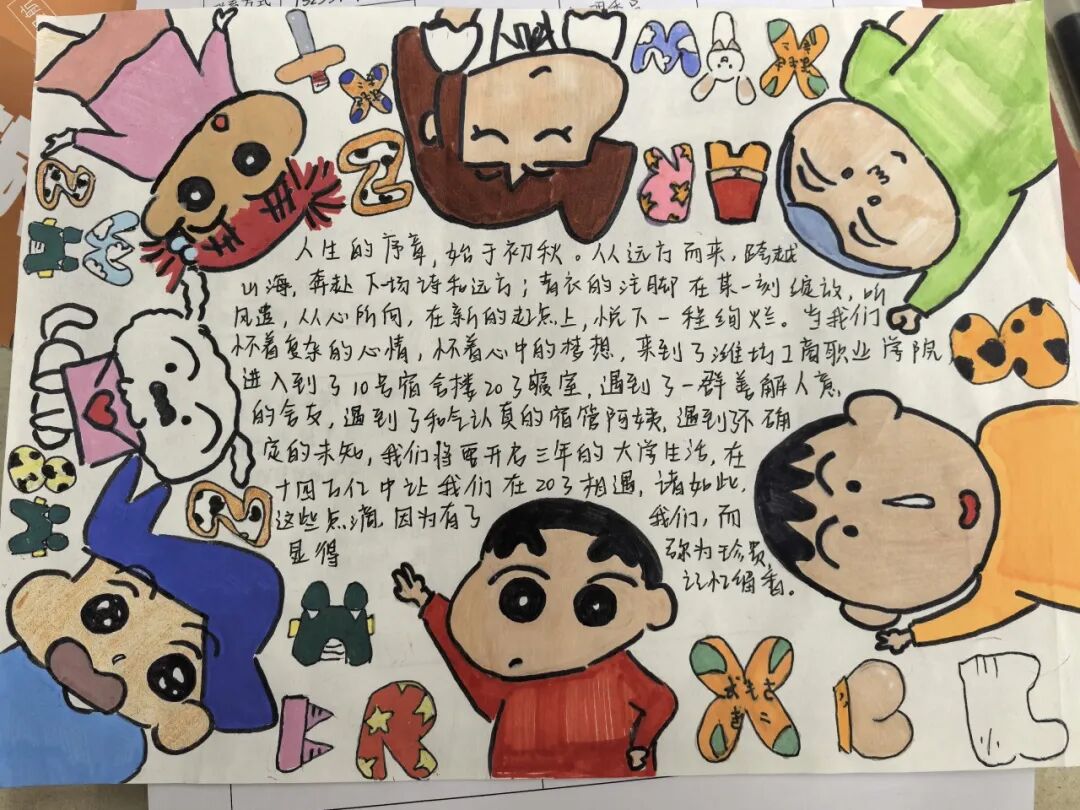 人生的序章，始于初秋。从远方而来，跨越
山海，奔赴下一场诗和远方；青衣的注脚在某一刻绽放，听
风遣，从心所向，在新的起点上，悦下一程绚烂。当我们
怀着复杂的心情，怀着心中的梦想，来到了潍坊工商职业学院
进入到了10号宿舍楼203寝室，遇到了一群善解人意
的舍友，遇到了和气认真的宿管阿姨，遇到了不确
定的未知，我们将要开启三年的大学生活，在
十四百亿中让我们在203相遇，诸如此，
这些点滴，因为有了我们，而
显得弥为珍贵，
记忆缅香。